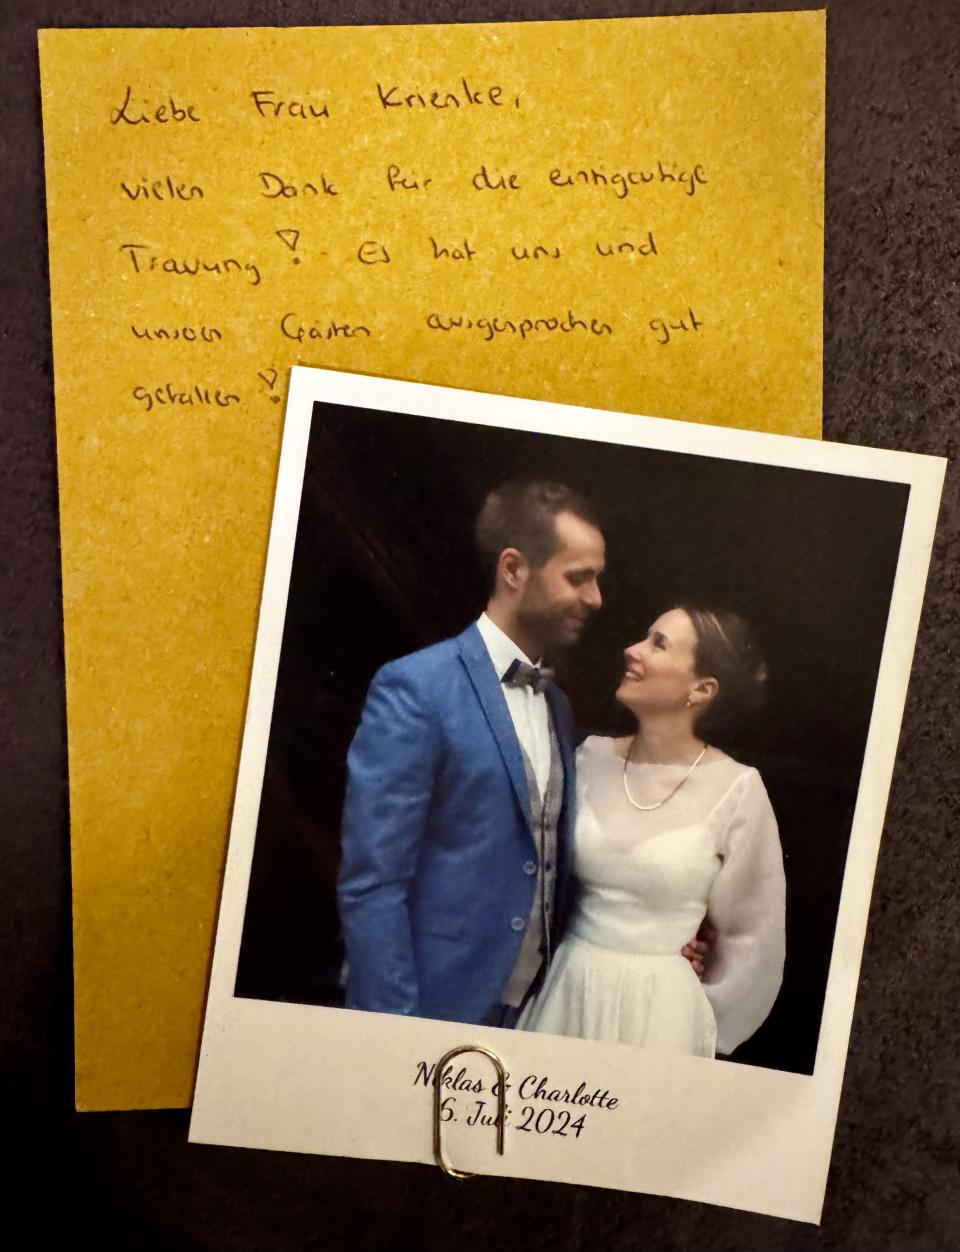 Liebe Frau Krienke,
vielen Dank für die einzigartige
Trauung! Es hat uns und
unseren Gästen ausgesprochen gut
gefallen!
Niklas & Charlotte
6. Juli 2024